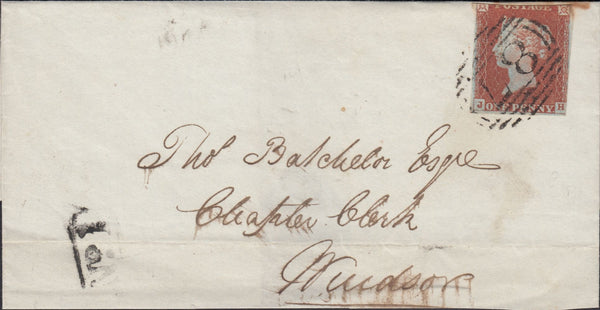 POSTAGE
8
J ONE PENNY H
Thos Batchelor Esqre
Chapter Clerk
Windsor